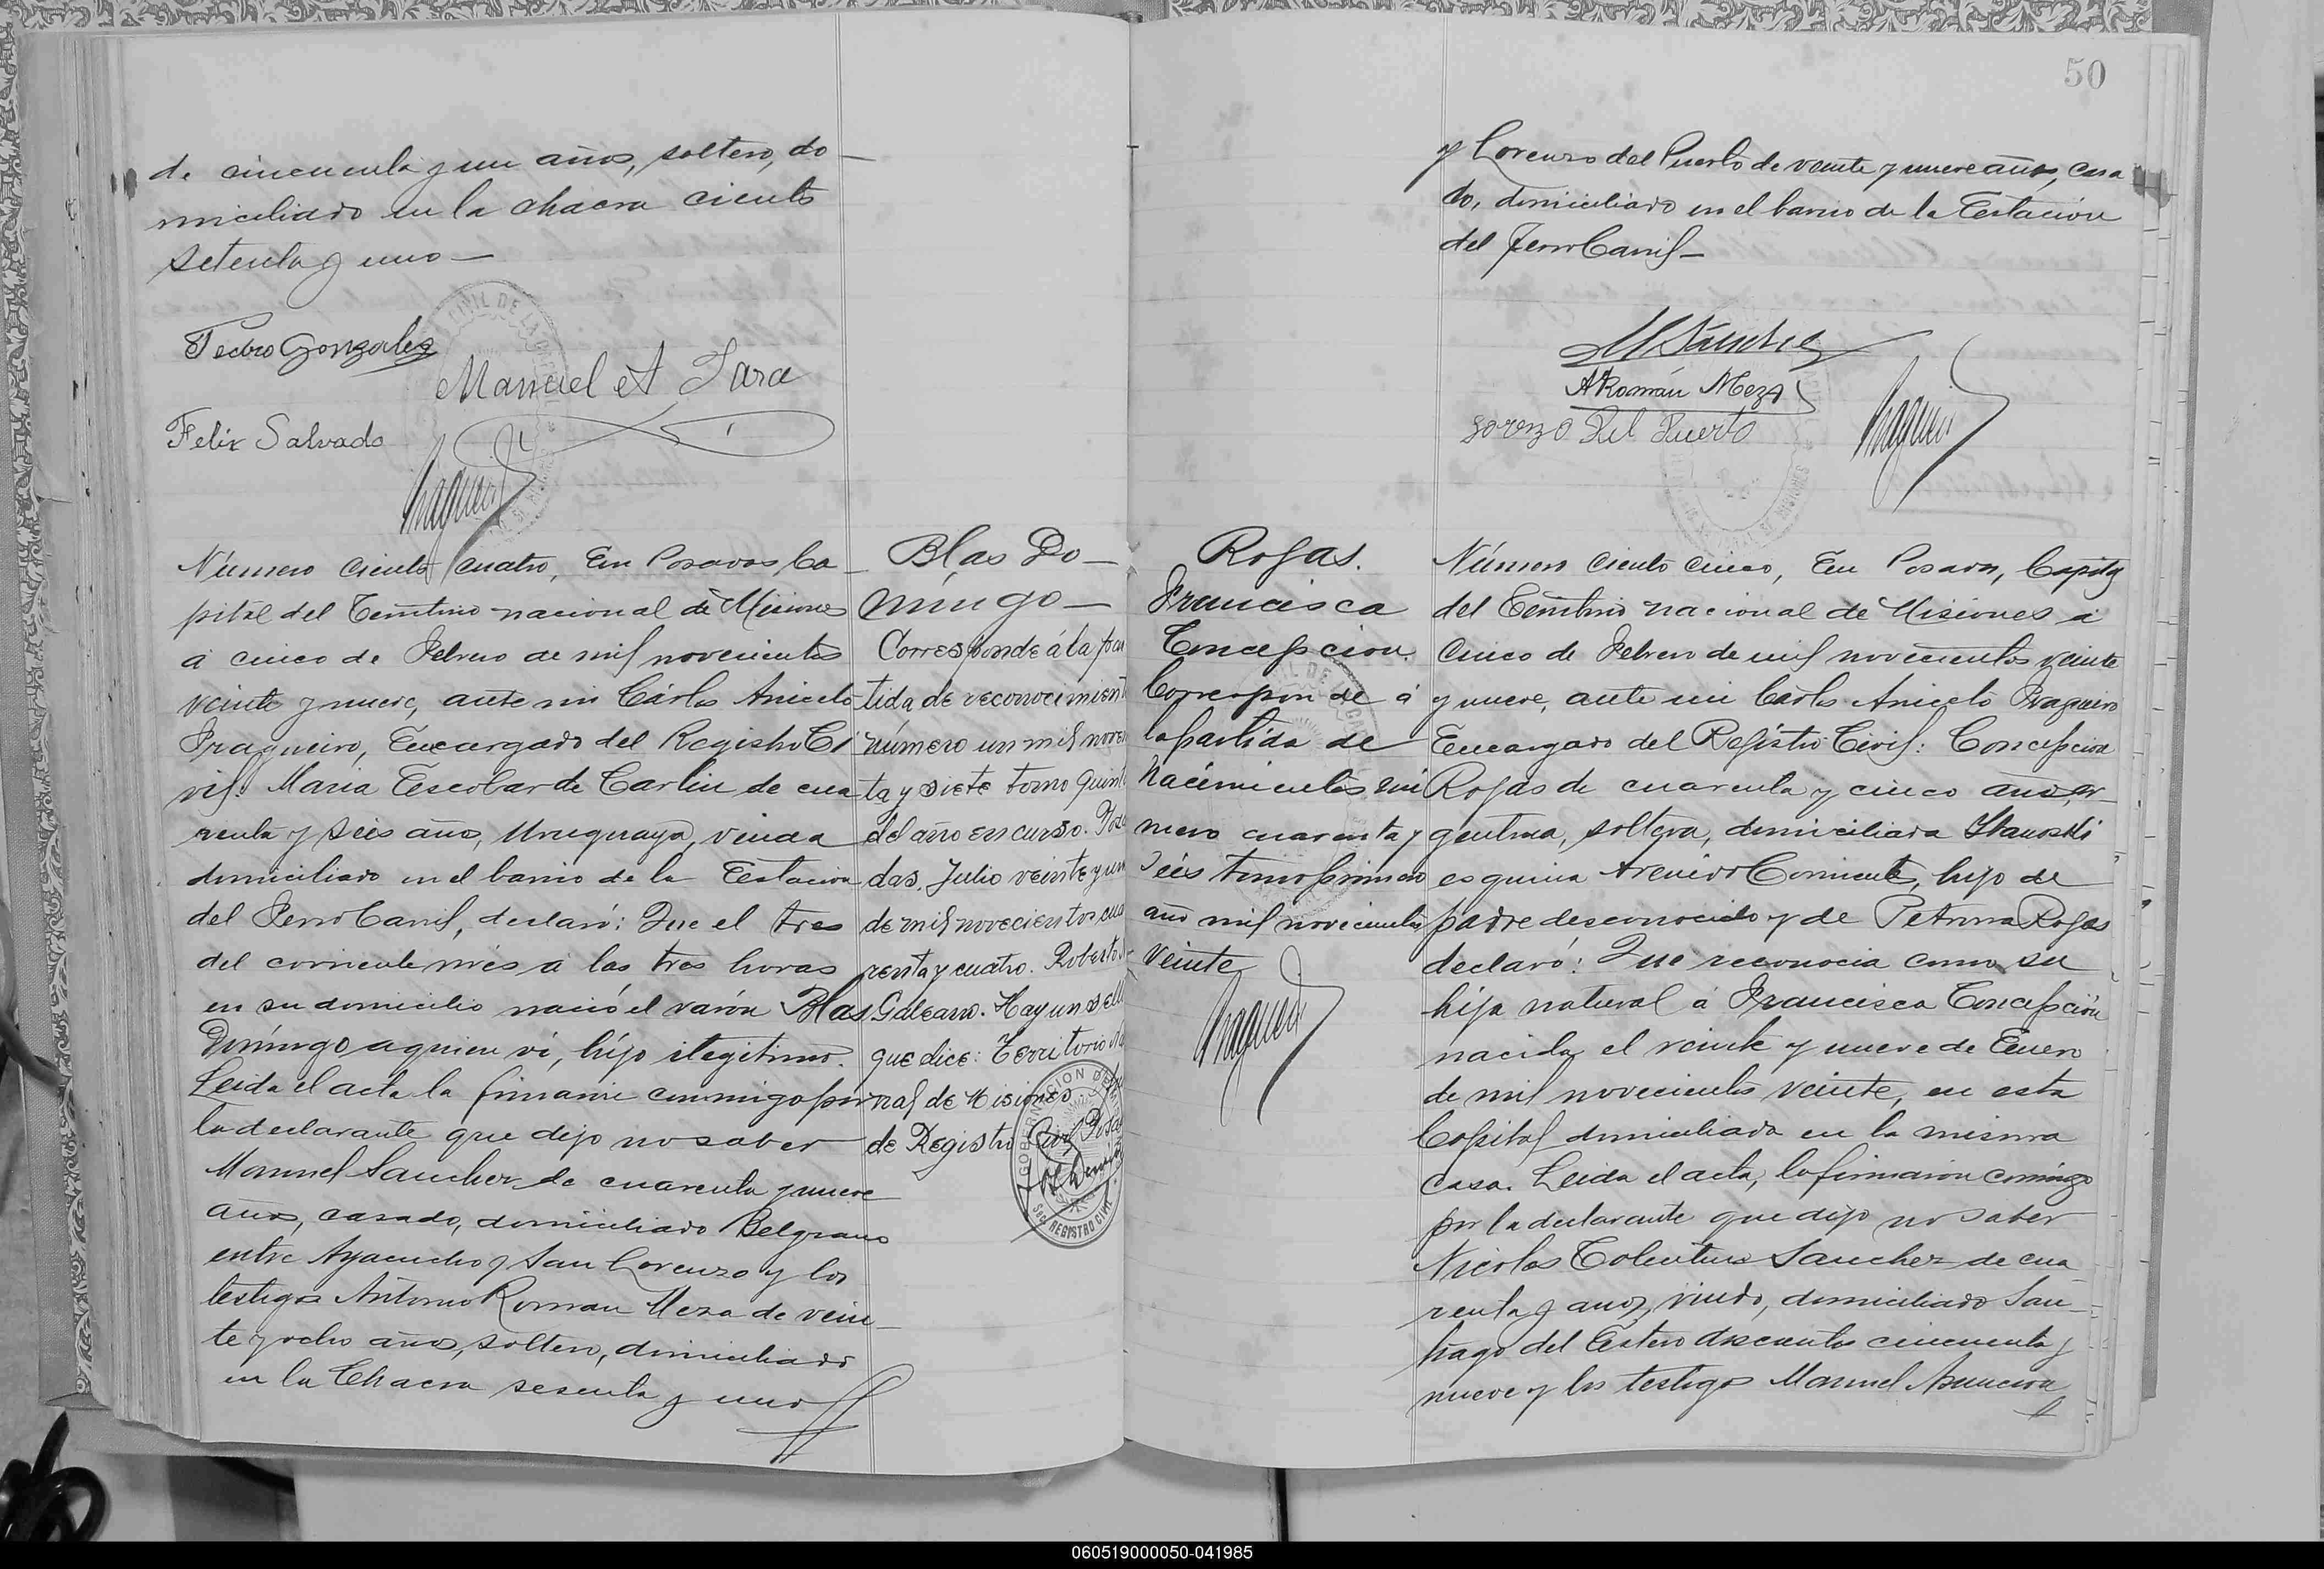 de cincuenta y un años, soltero, do-
miciliado en la chacra ciento
setenta y uno—
Pedro Gonzalez
Manuel A Jara
Felix Salvado
Número ciento cuatro, En Posadas, Ca-
pital del Territorio nacional de Misiones
á cinco de Febrero de mil novecientos
veinte y nueve, ante mi Cárlos Aniceto
Fragueiro, Encargado del Registro Ci
vil: Maria Escobar de Carlin de cua
renta y seis años, Uruguaya, viuda
domiciliado en el barrio de la Estacion
del Ferro Carril, declaró: Que el tres
del corriente més á las tres horas
en su domicilio nació el varón Blas
Domingo a quien ví, hijo ilegitimo.
Leida el acta la firmaron conmigo por
la declarante que dijo no saber
Manuel Sanchez de cuarenta y nueve
años, casado, domiciliado Belgrano
entre Ayacucho y San Lorenzo y los
testigos Antonio Roman Meza de vein-
te y ocho años, soltero, domiciliado
en la Chacra sesenta y uno
Blas Do-
mingo—
Corresponde á la par
tida de reconocimient
número un mil noven
ta y siete tomo quint
del año en curso. Posa
das, Julio veinte y un
de mil novecientos cua
renta y cuatro. Roberto
Galeano. Hay un sell
que dice: Territorio Na
nal de Misiones
de Registro Civil Posa
GOBERNACION DE
Sec. REGISTRO CIVIL
50
y Lorenzo del Puerto de veinte y nueve años, casa
do, domiciliado en el barrio de la Estación
del Ferro Carril—
M Sánchez
A Román Meza
Lorenzo Del Puerto
Rojas.
Francisca
Concepcion.
Corresponde á
la partida de
nacimientos nú
mero cuarenta y
seis tomo primero
año mil novecientos
veinte
Número ciento cinco, En Posadas, Capital
del Territorio nacional de Misiones á
cinco de Febrero de mil novecientos veinte
y nueve, ante mi Carlos Aniceto Fragueiro
Encargado del Registro Civil: Concepcion
Rojas de cuarenta y cinco años, ar-
gentina, soltera, domiciliada
esquina Corrientes, hijo de
padre desconocido y de Petrona Rojas
declaró: Que reconocia como su
hija natural á Francisca Concepción
nacida el veinte y nueve de Enero
de mil novecientos veinte, en esta
Capital domiciliada en la misma
casa. Leida el acta, la firmaron conmigo
por la declarante que dijo no saber
Nicolas Tolentino Sanchez de cua
renta y años, viudo, domiciliado San-
tiago del Estero doscientos cincuenta y
nueve y los testigos Manuel Asuncion
060519000050-041985